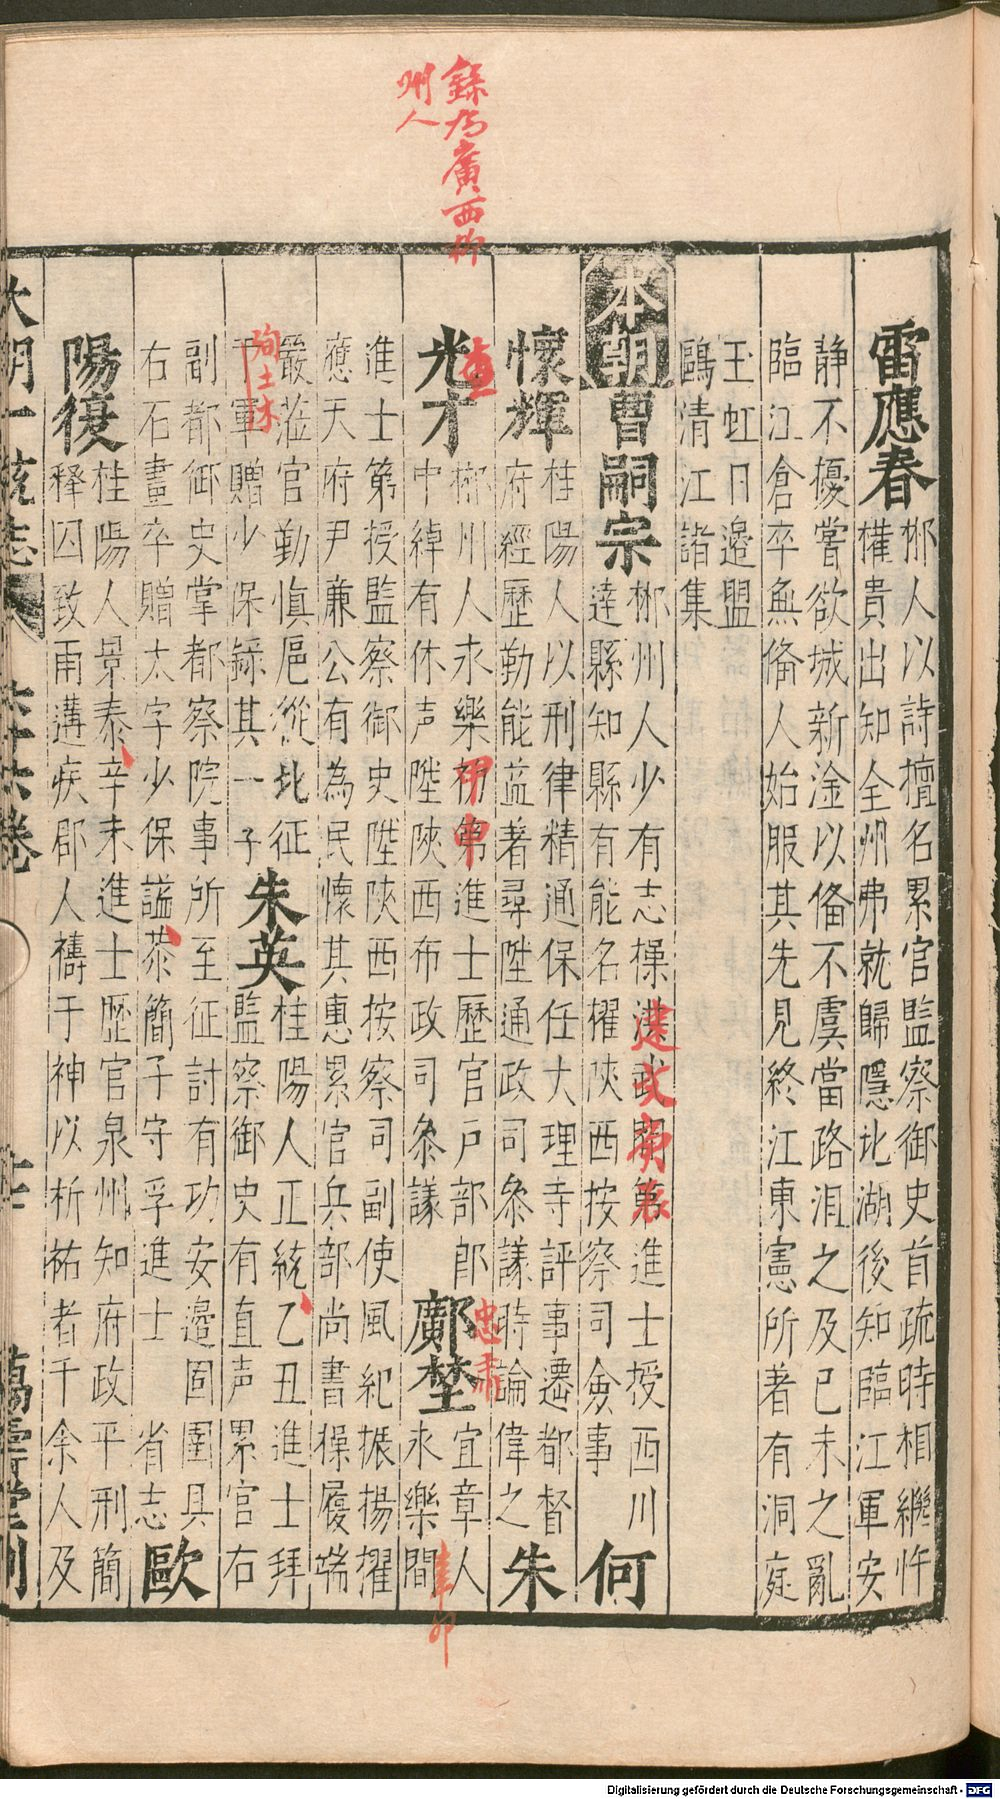 錄為廣西柳
州人
雷應春
郴人以詩擅名累官監察御史首疏時相繼忤
權貴出知全州弗就歸隱北湖後知臨江軍安
静不擾嘗欲城新淦以備不虞當路沮之及己未之亂
臨江倉卒無俻人始服其先見終江東憲所著有洞庭
玉虹日邉盟
鷗清江諸集
本朝
曹嗣宗
郴州人少有志操洪武間第進士授西川
達縣知縣有能名擢陜西按察司僉事
建文
何
懷輝
桂陽人以刑律精通保任大理寺評事遷都督
府經歷勤能益著尋陞通政司叅議時論偉之
朱
光才
郴州人永樂初第進士歷官戶部郎
中綽有休声陞陜西布政司叅議
甲申
忠肅
鄺埜
宜章人
永樂間
辛卯
進士第授監察御史陞陜西按察司副使風紀振揚擢
應天府尹亷公有為民懷其惠累官兵部尚書操履端
嚴蒞官勤慎扈從北征
于軍贈少保録其一子
殉土木
朱英
桂陽人正統乙丑進士拜
監察御史有直声累官右
副都御史掌都察院事所至征討有功安邉固圉具
右石畫卒贈太字少保謚恭簡子守孚進士 省志
歐
陽復
桂陽人景泰辛未進士歷官泉州知府政平刑簡
釋囚致雨遘疾郡人禱于神以析祐者千余人及
大明一統志
六十六卷
萬壽堂刊
Digitalisierung gefördert durch die Deutsche Forschungsgemeinschaft - DFG